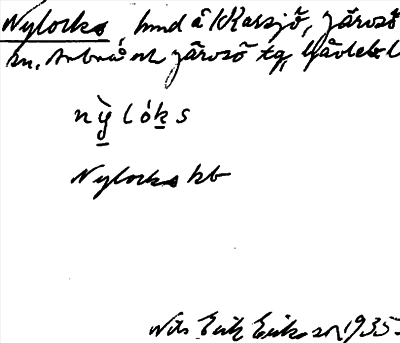 Nylocks, hmd å Kårsjö, Järvsö
sn, Arbrå och Järvsö tg, Gävleb. l
nỳlóks
Nylocks kb
Nils Erik Eriksson 1935